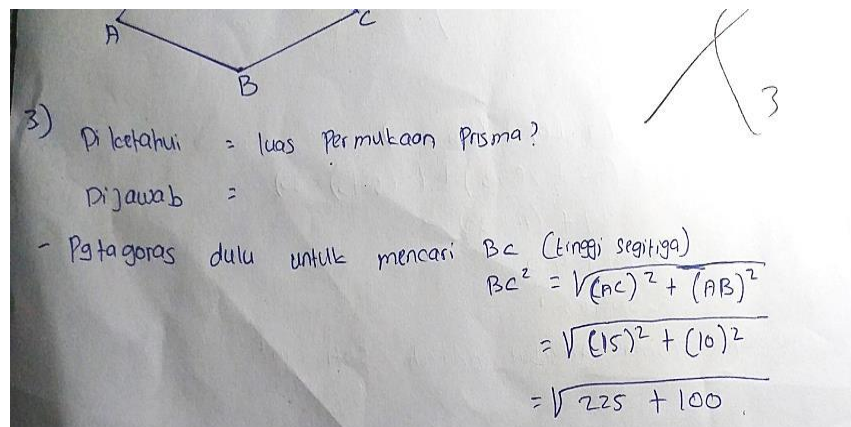 A
C
B
3
3) Diketahui = luas Permukaan Prisma?
Dijawab =
- Pytagoras dulu untuk mencari BC (tinggi segitiga)
BC² = √(AC)² + (AB)²
= √(15)² + (10)²
= √225 + 100